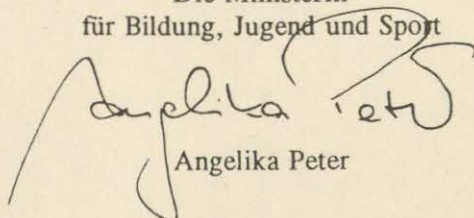 Die Ministerin
für Bildung, Jugend und Sport
Angelika Peter
Angelika Peter